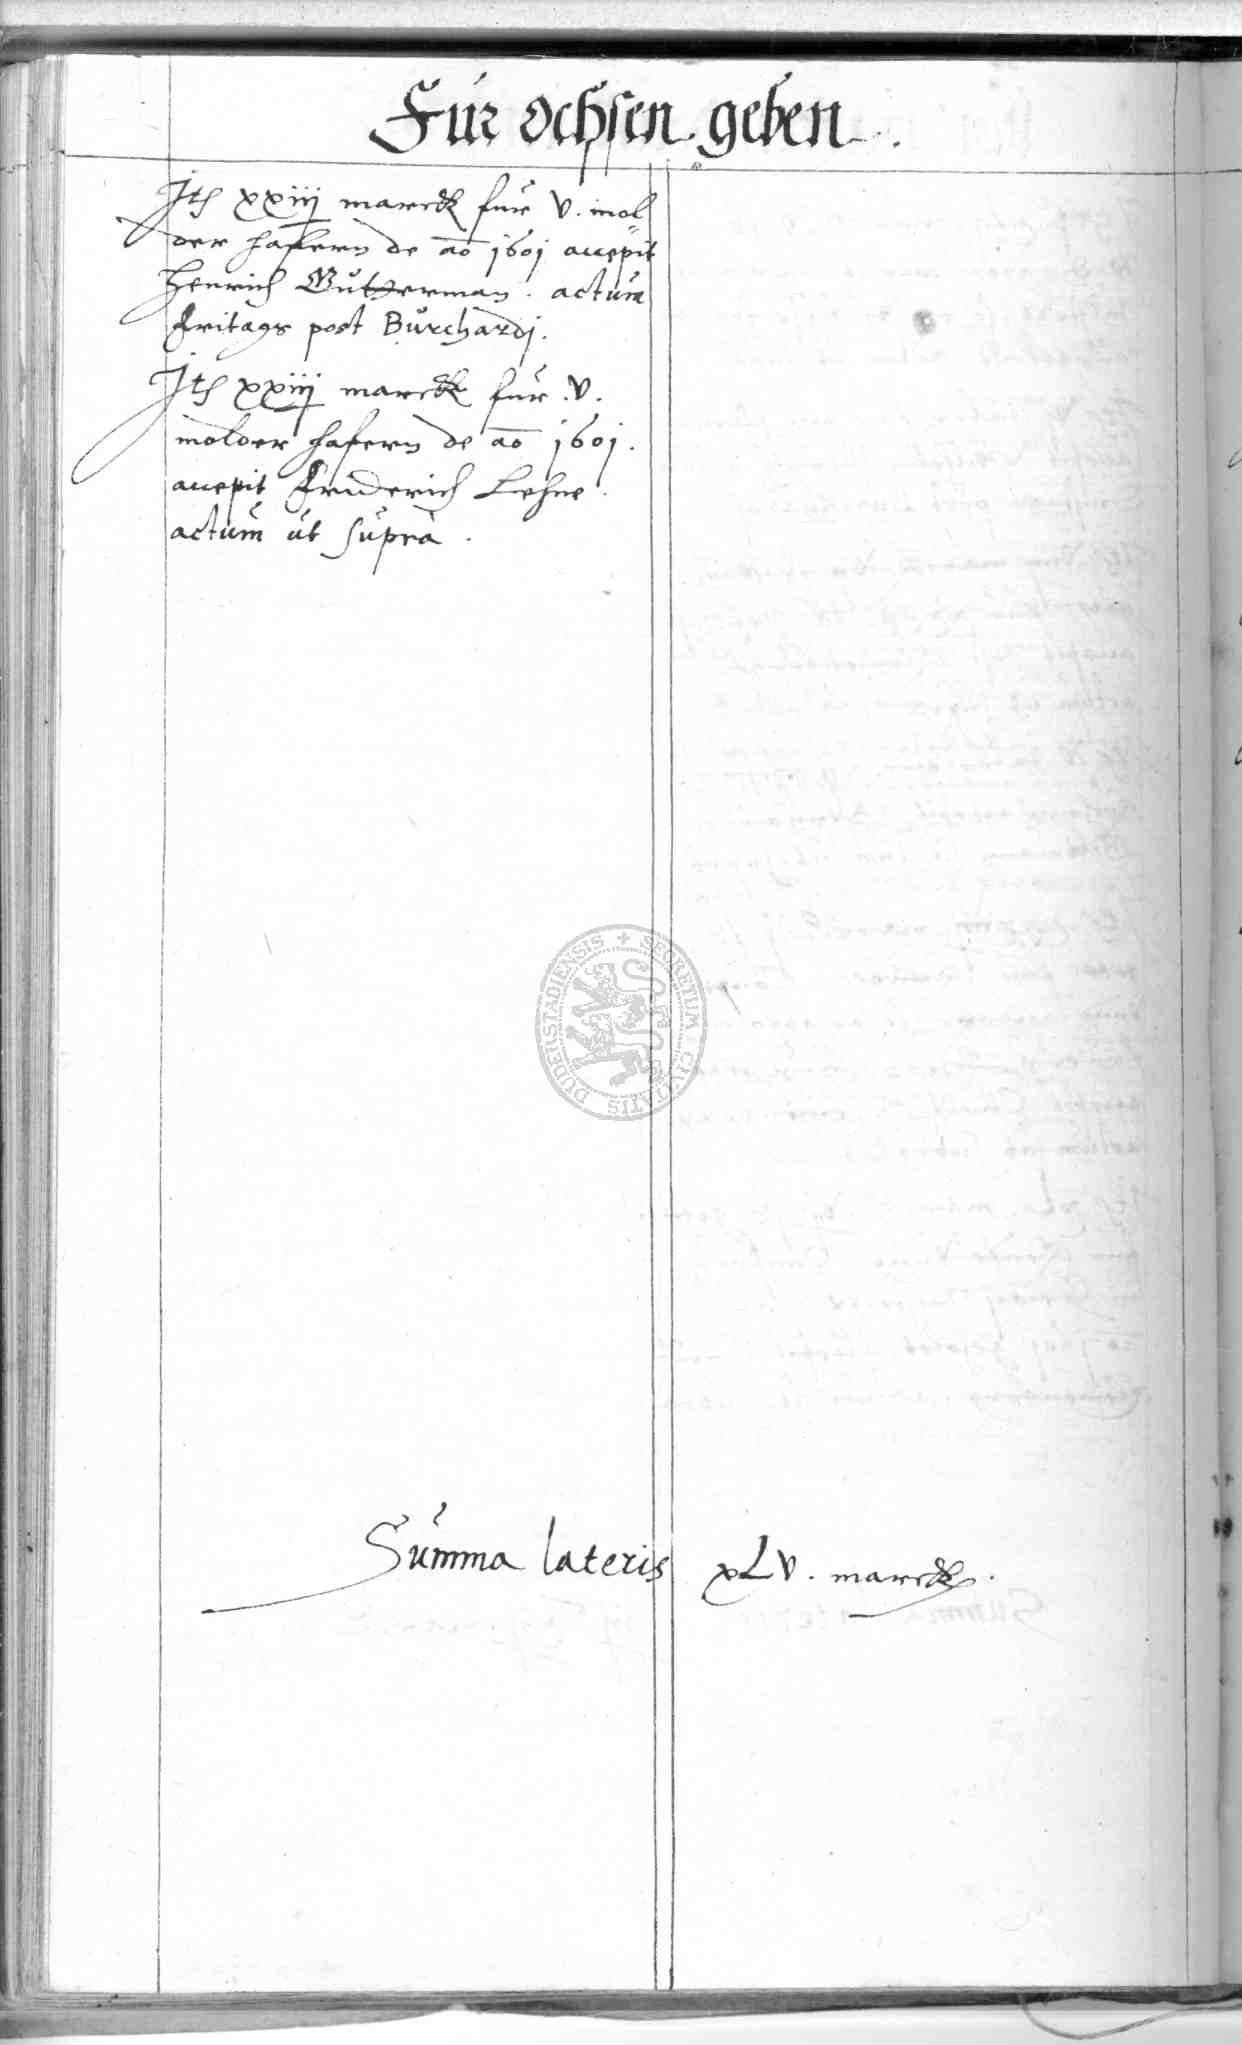 Für ochsen geben.
Itē xxiij marck für v. mol
der hafern de aō 1601 accepit
Henrich Gutzerman. actum
fritags post Burchardj.
Itē xxiij marck für .v.
molder hafern de aō 1601.
accepit Friderich Lehne.
actum ut supra.
Summa lateris xLv. marck.
SECRETUM CIVITATIS DUDERSTADIENSIS